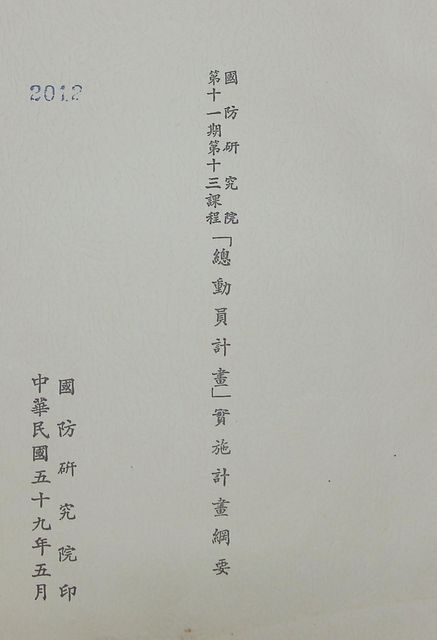 國防研究院
第十一期第十三課程
「總動員計畫」實施計畫綱要
國防研究院印
中華民國五十九年五月
2012